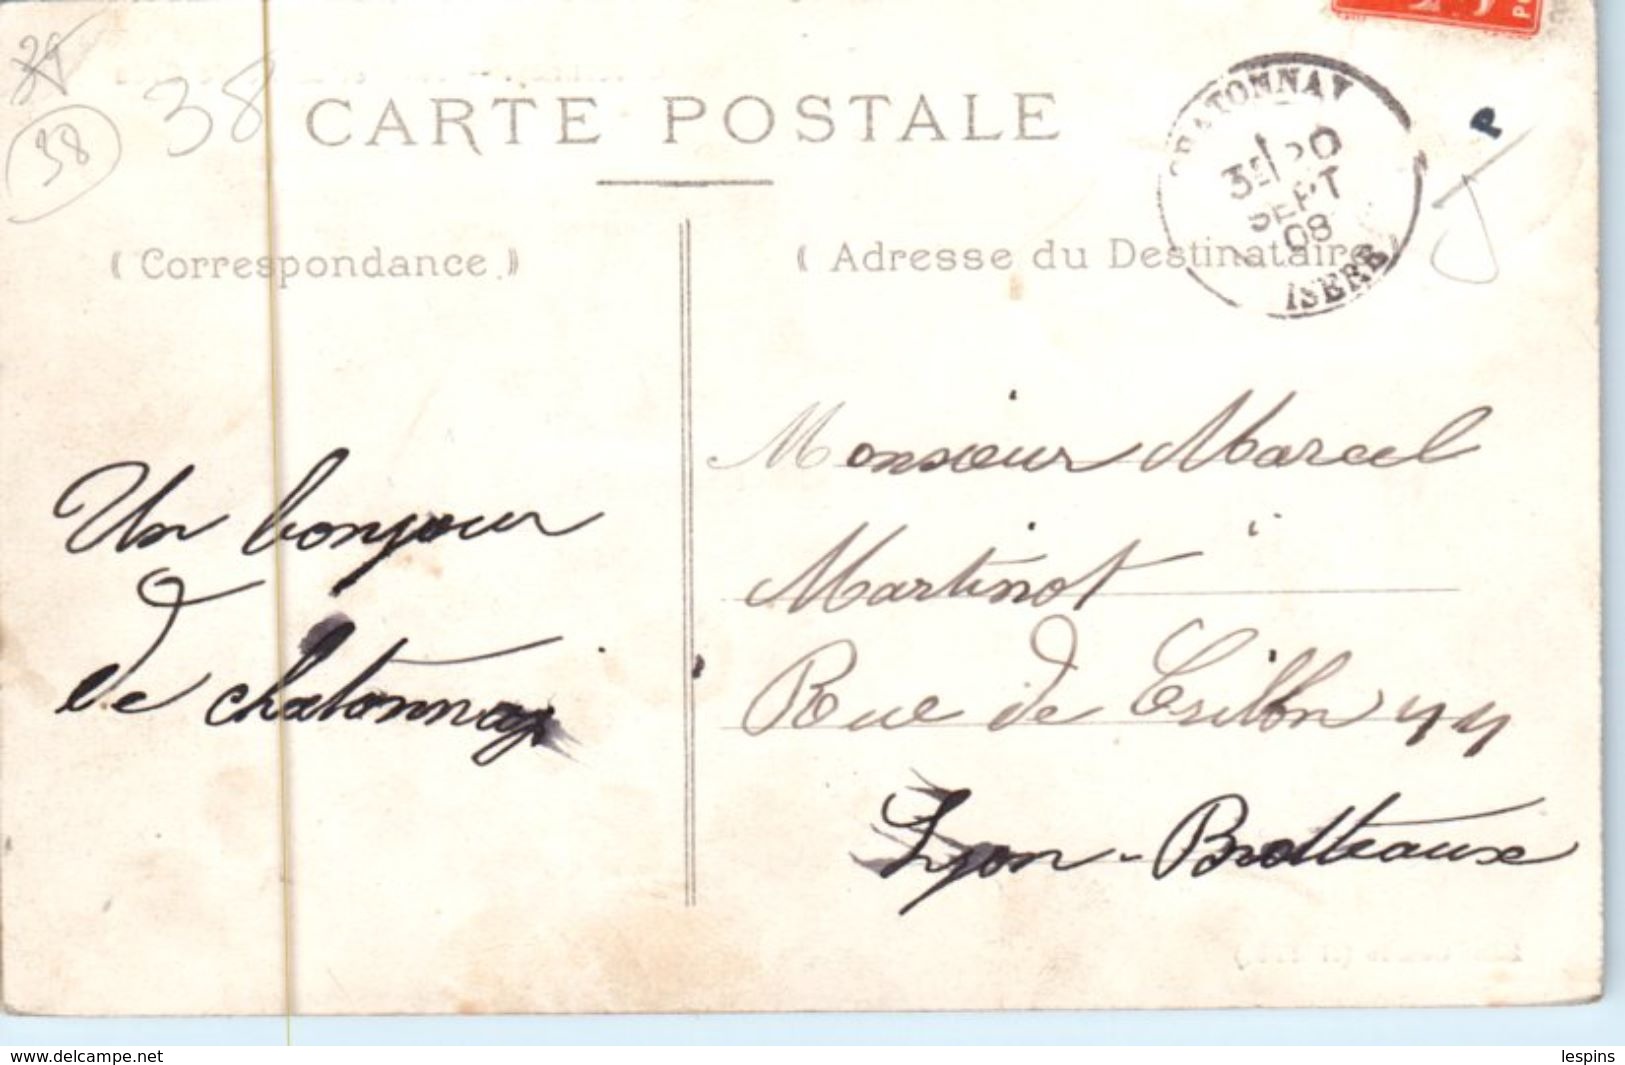 38
38
CARTE POSTALE
CHATONNAY
3E 20
SEPT
08
ISERE
P
( Correspondance )
( Adresse du Destinataire )
Un bonjour
de chatonnay
Monsieur Marcel
Martinot
Rue de Crillon 44
Lyon-Brotteaux
www.delcampe.net
lespins